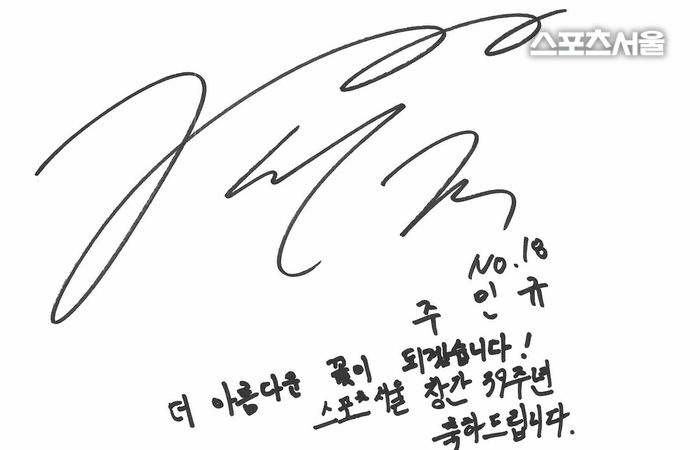 스포츠서울
No.18
주인규
더 아름다운 꽃이 되겠습니다!
스포츠서울 창간 39주년
축하드립니다.